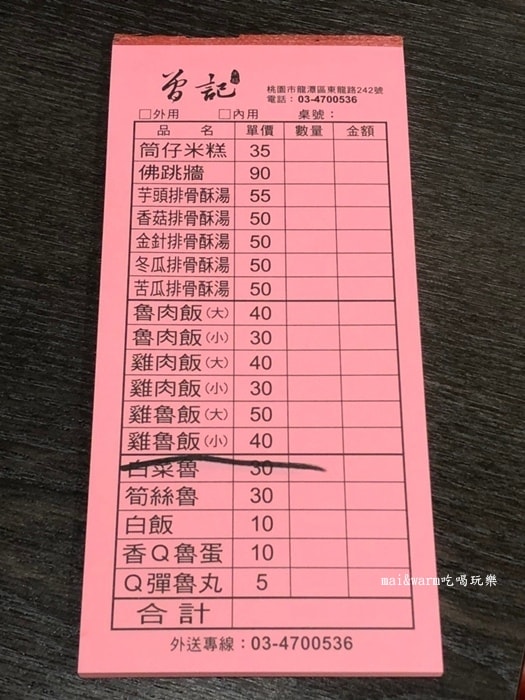 曾記
桃園市龍潭區東龍路242號
電話：03-4700536
□外用 □內用 桌號：
品 名 單價 數量 金額
筒仔米糕 35
佛跳牆 90
芋頭排骨酥湯 55
香菇排骨酥湯 50
金針排骨酥湯 50
冬瓜排骨酥湯 50
苦瓜排骨酥湯 50
魯肉飯(大) 40
魯肉飯(小) 30
雞肉飯(大) 40
雞肉飯(小) 30
雞魯飯(大) 50
雞魯飯(小) 40
白菜魯 30
筍絲魯 30
白飯 10
香Q魯蛋 10
Q彈魯丸 5
合計
外送專線：03-4700536
mai&warm吃喝玩樂